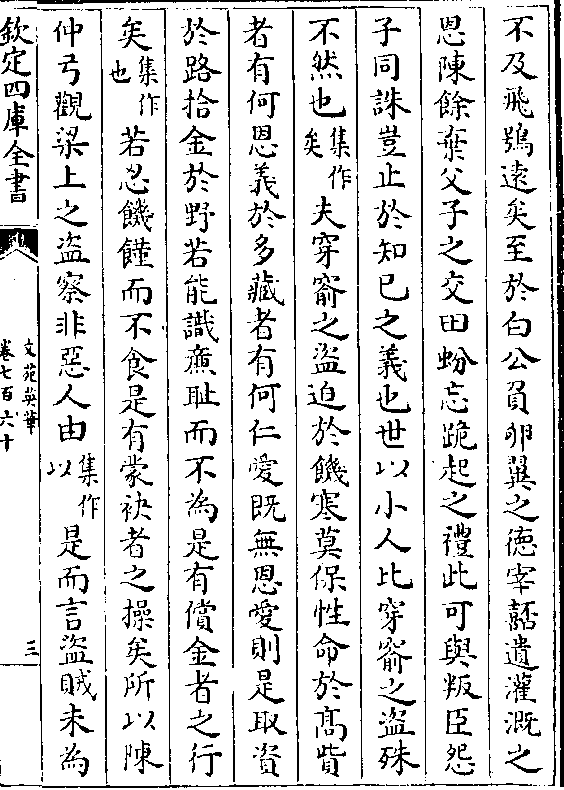 不及飛鴞遠矣至於白公負卵翼之德宰嚭遺灌溉之
恩陳餘棄父子之交田蚡忘跪起之禮此可與叛臣怨
子同誅豈止於知已之義也世以小人比穿窬之盜殊
不然也集作矣夫穿窬之盜迫於饑寒莫保性命於髙貲
者有何恩義於多藏者有何仁愛既無恩愛則是取資
於路拾金於野若能識㢘耻而不為是有償金者之行
矣集作也若忍饑饉而不食是有蒙袂者之操矣所以陳
仲弓觀梁上之盜察非惡人由集作以是而言盜賊未為
欽定四庫全書
文苑英華
卷七百六十
三